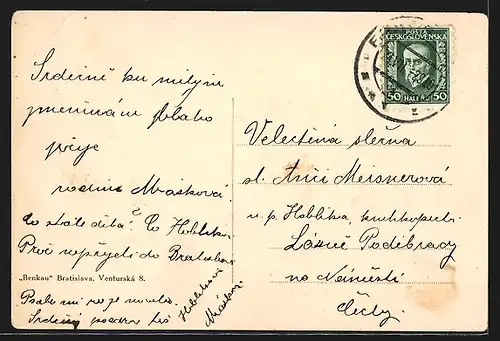 Srdečně ku milým
jmeninám blaho
přeje
rodina Mrásková.
Co stále dělá? Co Hoblíkovi
Proč nepřijeli do Bratislavy
„Benkau“ Bratislava, Venturská 8.
Psala mi
Srdečný pozdrav též
Hoblíkovi
POSTA
ČESKOSLOVENSKÁ
50 HALÉŘŮ 50
Velectěná slečna
sl. Anči Meisnerová
u. p. Hoblíka, knihkupech.
Lázně Poděbrady
na Náměstí
Čechy.